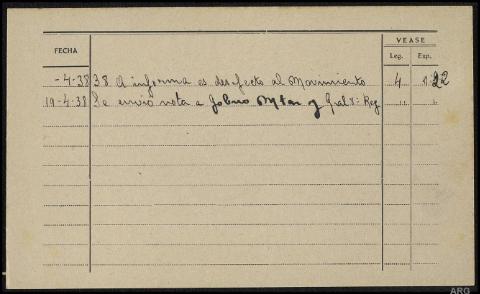 VEASE
FECHA
Leg. Exp.
-4-38 38 A informa es desafecto al Movimiento 4 22
19-4-38 Se envio nota a Gobno Mtar y Gral
ARG